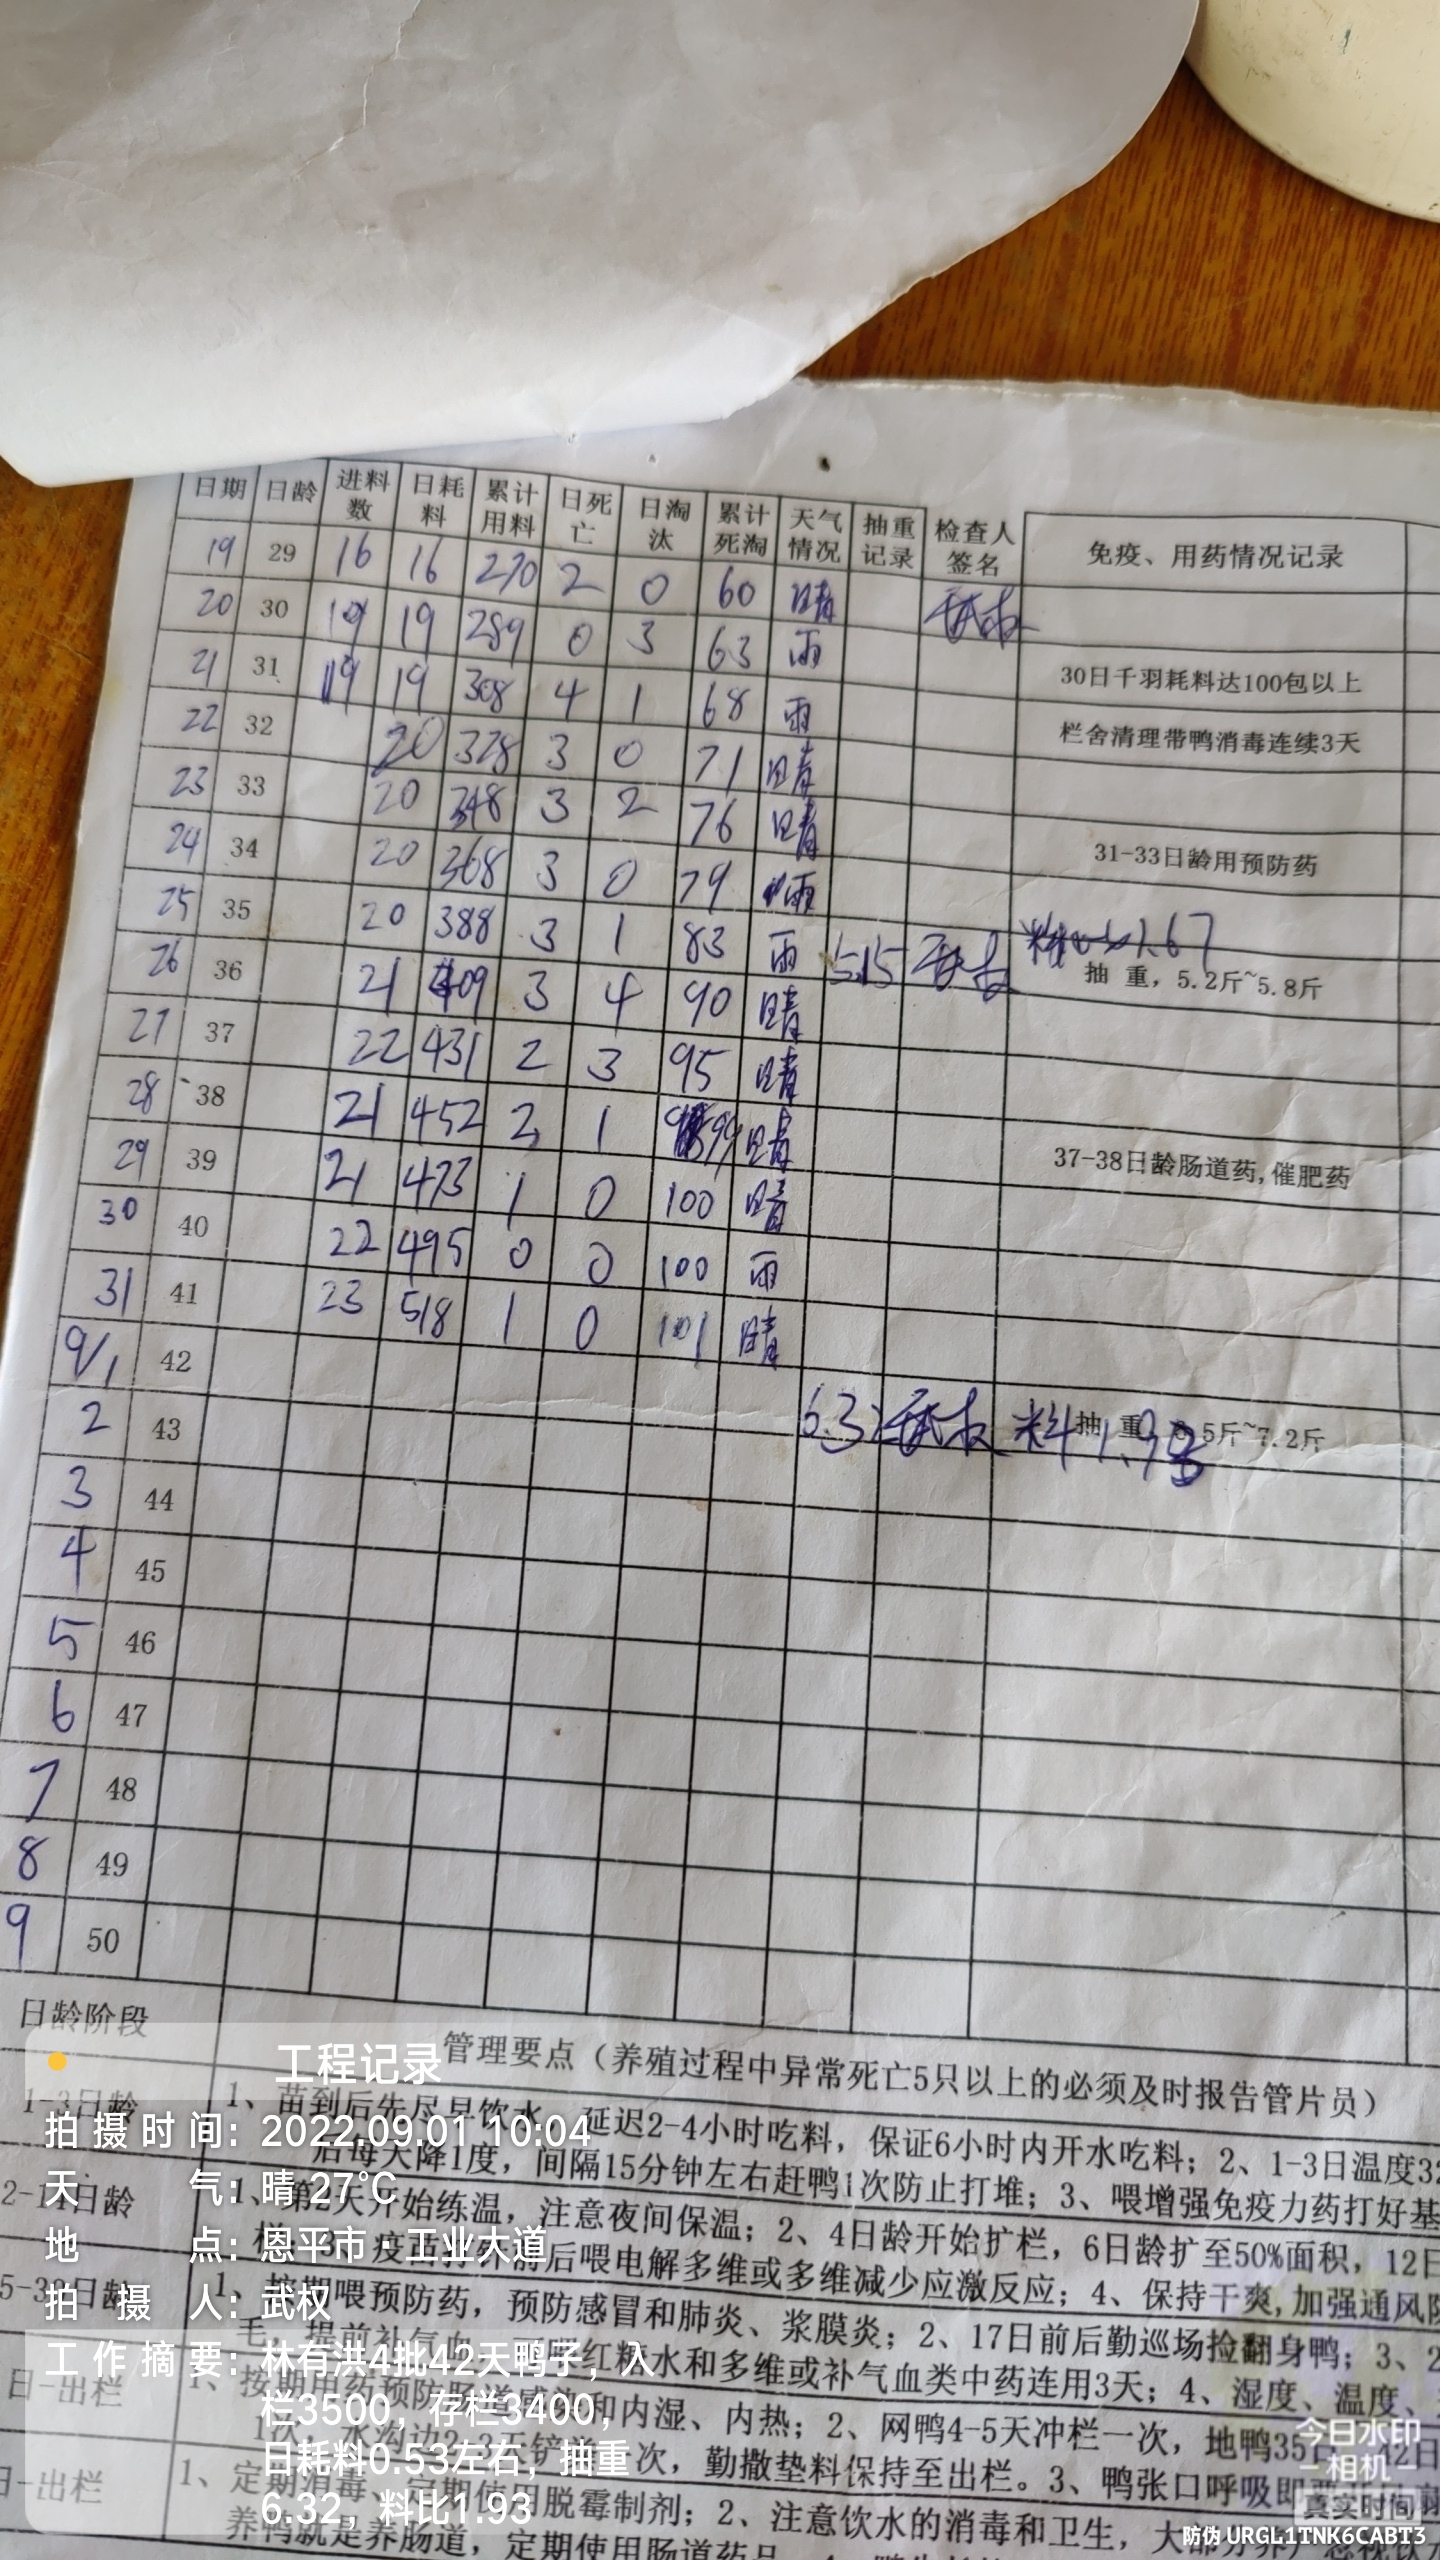 日期 日龄 进料数 日耗料 累计用料 日死亡 日淘汰 累计死淘 天气情况 抽重记录 检查人签名 免疫、用药情况记录
19 29 16 16 270 2 0 60 晴
20 30 19 19 289 0 3 63 雨
21 31 19 19 308 4 1 68 雨 30日千羽耗料达100包以上
22 32 20 328 3 0 71 晴 栏舍清理带鸭消毒连续3天
23 33 20 348 3 2 76 晴
24 34 20 368 3 0 79 雨 31-33日龄用预防药
25 35 20 388 3 1 83 雨 5.15 1.67
抽 重，5.2斤~5.8斤
26 36 21 409 3 4 90 晴
27 37 22 431 2 3 95 晴
28 38 21 452 2 1 99 晴 37-38日龄肠道药,催肥药
29 39 21 473 1 0 100 晴
30 40 22 495 0 0 100 雨
31 41 23 518 1 0 101 晴
9/1 42 6.32 料1.93
抽 重 5斤~7.2斤
2 43
3 44
4 45
5 46
6 47
7 48
8 49
9 50
日龄阶段 管理要点（养殖过程中异常死亡5只以上的必须及时报告管片员）
1-3日龄 1、苗到后先尽早饮水 延迟2-4小时吃料，保证6小时内开水吃料；2、1-3日温度32
后每天降1度，间隔15分钟左右赶鸭1次防止打堆；3、喂增强免疫力药打好基
2-14日龄 1、第2天开始练温，注意夜间保温；2、4日龄开始扩栏，6日龄扩至50%面积，12日
前后喂电解多维或多维减少应激反应；4、保持干爽,加强通风防
1、按期喂预防药，预防感冒和肺炎、浆膜炎；2、17日前后勤巡场捡翻身鸭；3、2
红糖水和多维或补气血类中药连用3天；4、湿度、温度、
日-出栏 1、按期用药预防肠道感染和内湿、内热；2、网鸭4-5天冲栏一次，地鸭35日
次，勤撒垫料保持至出栏。3、鸭张口呼吸即
日-出栏 1、定期消毒、定期使用脱霉制剂；2、注意饮水的消毒和卫生，
养鸭就是养肠道，定期使用肠道药品
工程记录
拍摄时间：2022.09.01 10:04
天气：晴 27℃
地点：恩平市·工业大道
拍摄人：武权
工作摘要：林有洪4批42天鸭子，入
栏3500，存栏3400，
日耗料0.53左右，抽重
6.32，料比1.93
今日水印
相机
真实时间
防伪 URGL1TNK6CABT3